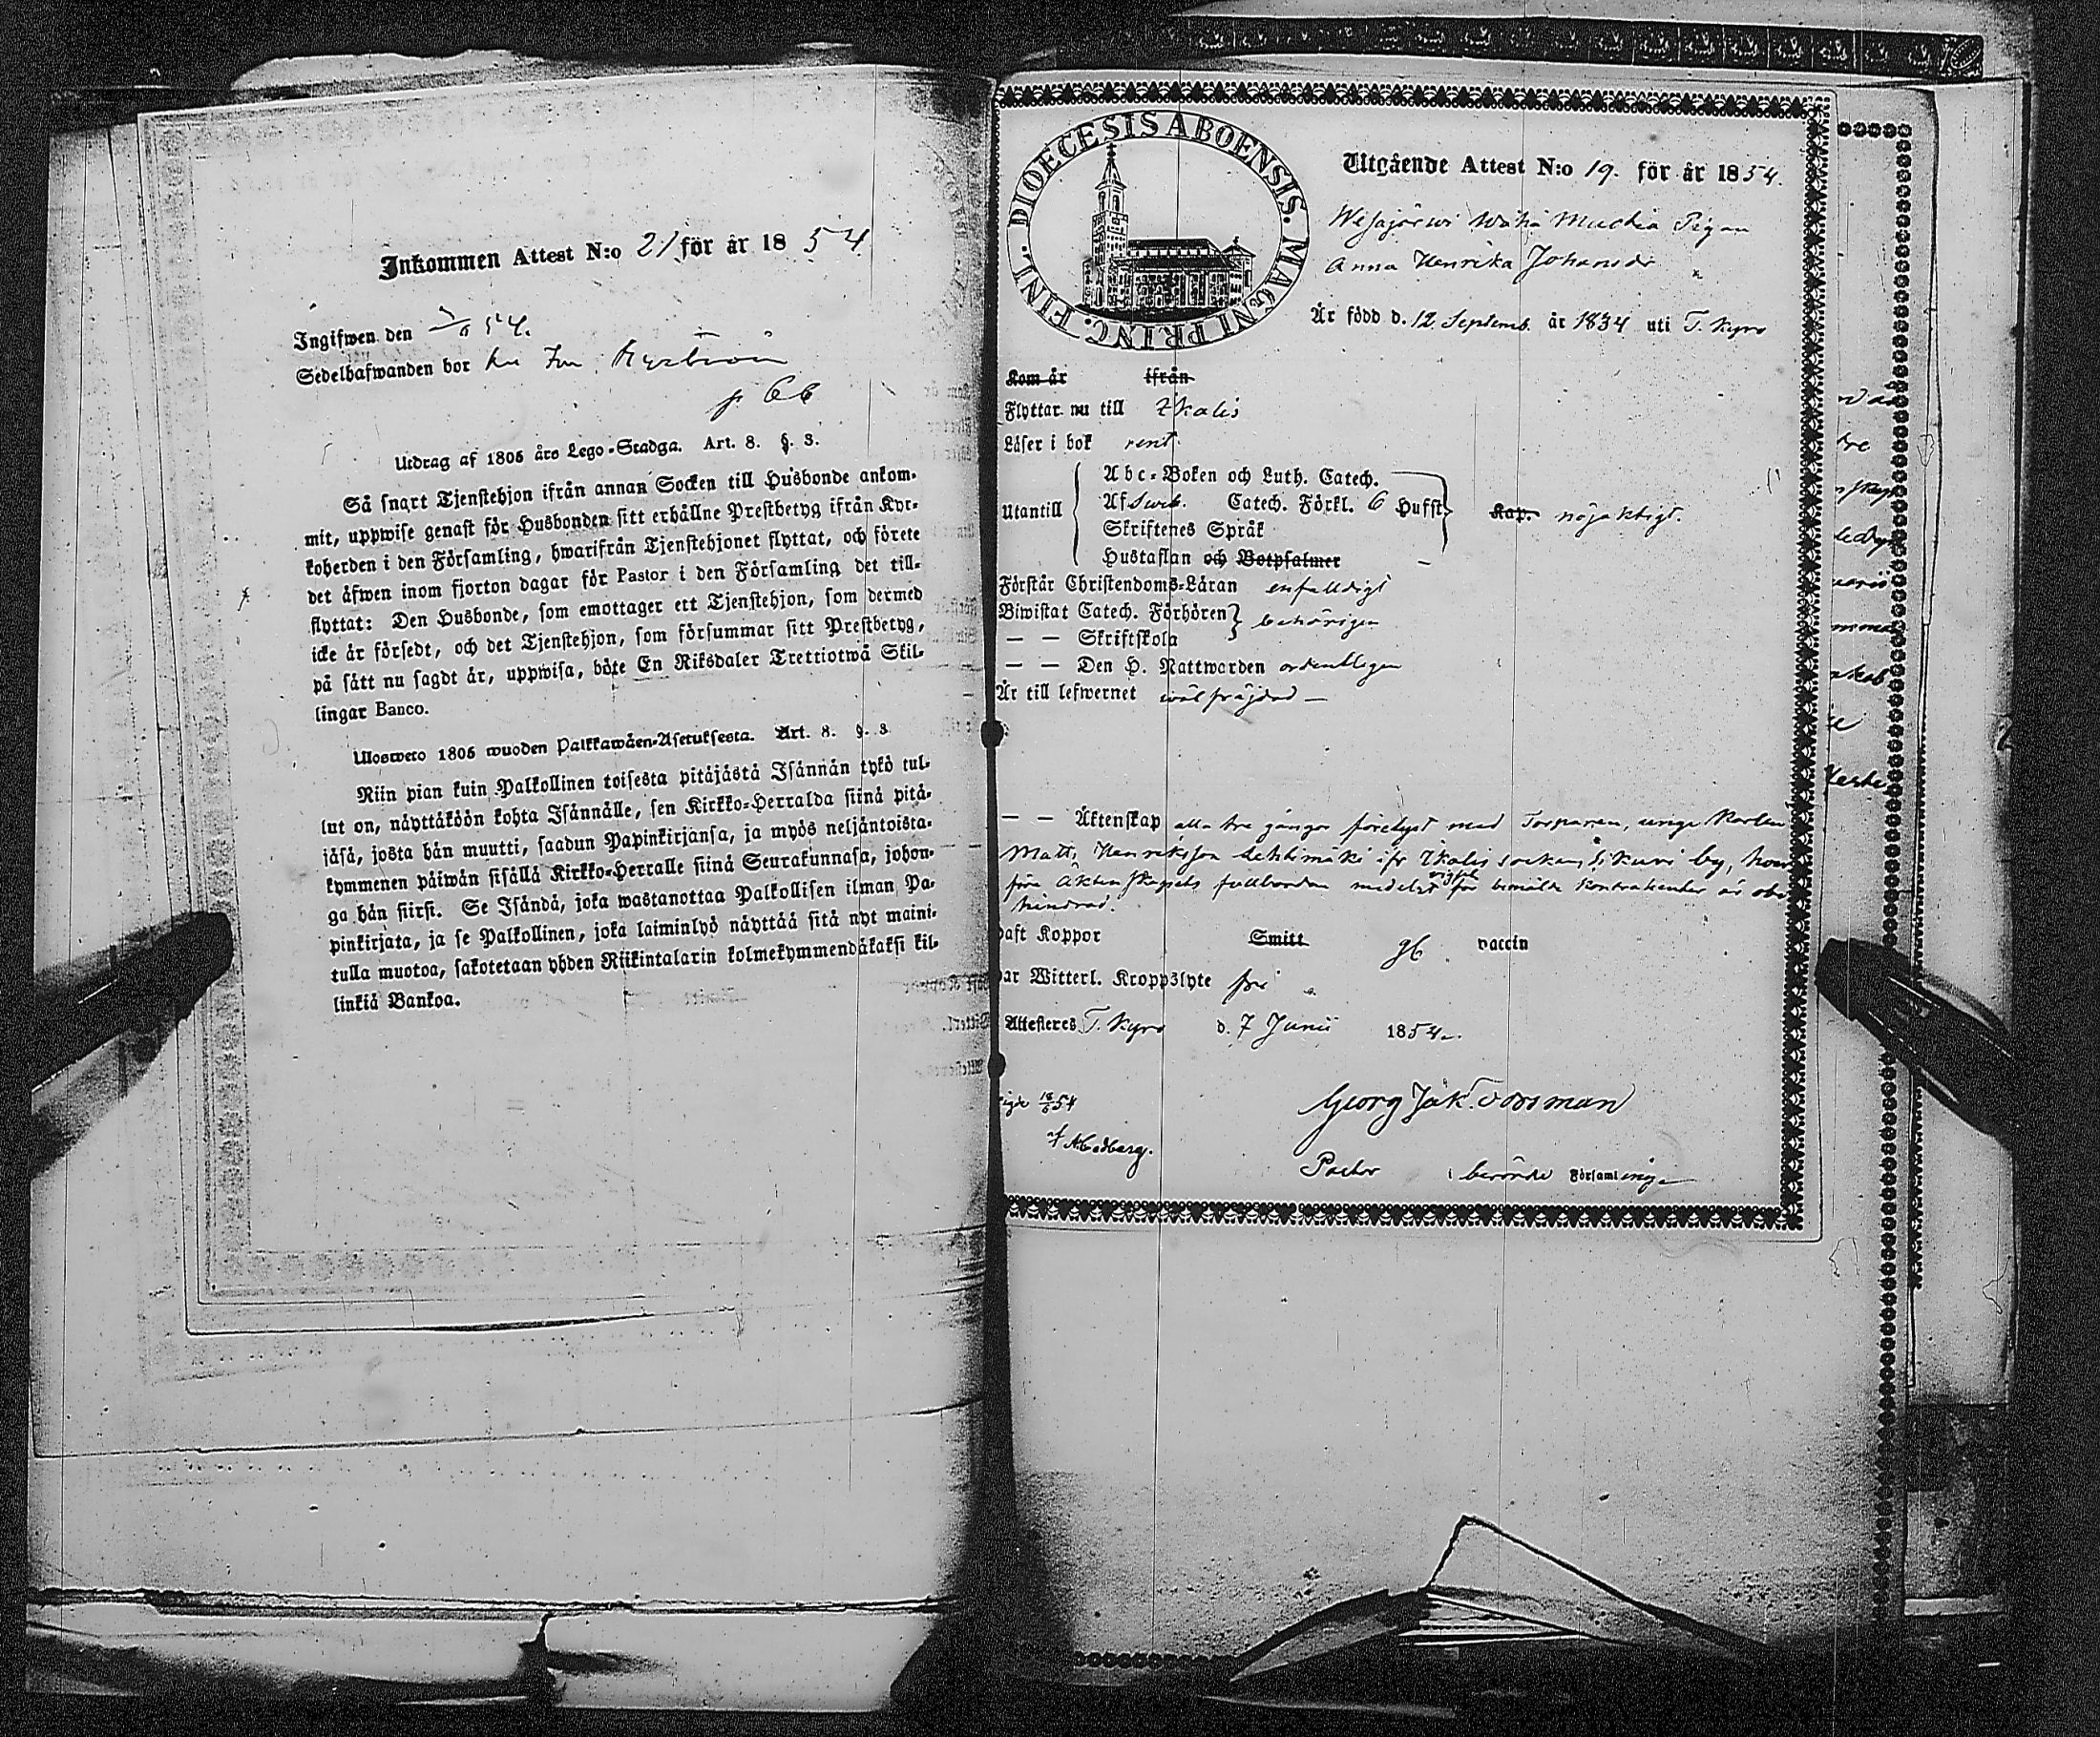 Inkommen Attest N:o 21 för år 1854.
Ingifwen den 54.
Sedelhafwanden bor
p 66
Utdrag af 1805 års Lego-Stadga. Art. 8. §. 3.
Så snart Tjenstehjon ifrån annan Socken till Husbonde ankom-
mit, uppwise genast för Husbonden sitt erhållne Prestbetyg ifrån Kyr-
koherden i den Församling, hwarifrån Tjenstehjonet flyttat, och förete
det äfwen inom fjorton dagar för Pastor i den Församling det till-
flyttat: Den Husbonde, som emottager ett Tjenstehjon, som dermed
icke är försedt, och det Tjenstehjon, som försummar sitt Prestbetyg,
på sätt nu sagdt är, uppwisa, böte En Riksdaler Trettiotwå Skil-
lingar Banco.
Ulosweto 1805 wuoden Palkkawäen-Asetuksesta. Art. 8. §. 3
Niin pian kuin Palkollinen toisesta pitäjästä Isännän tykö tul-
lut on, näyttäköön kohta Isännälle, sen Kirkko-Herralda siinä pitä-
jäsä, josta hän muutti, saadun Papinkirjansa, ja myös neljäntoista-
kymmenen päiwän sisällä Kirkko-Herralle siinä Seurakunnasa, johon-
ga hän siirsi. Se Isändä, joka wastanottaa Palkollisen ilman Pa-
pinkirjata, ja se Palkollinen, joka laiminlyö näyttää sitä nyt maini-
tulla muotoa, sakotetaan yhden Riikintalarin kolmekymmendäkaksi kil-
linkiä Bankoa.
DIOECESIS ABOENSIS. MAGNI PRINC. FINL.
Utgående Attest N:o 19. för år 1854.
Wesajärwi Wähä Muckia Pigan
Anna Henrika Johansdr
Är född d. 12 Septemb. år 1834 uti T. Kyro
Kom år ifrån
Flyttar nu till Ikalis
Läser i bok rent.
Utantill
Abc-Boken och Luth. Catech.
Af Sweb. Catech. Förkl. 6 Hufst
Skriftenes Språk
Hustaflan och Botpsalmer
Kap. nöjaktigt.
Förstår Christendoms-Läran enfaldigt
Biwistat Catech. Förhören
— — Skriftskola
behörigen
— — Den H. Nattwarden ordentligen
Är till lefwernet wäl fräjdad —
— — Äktenskap alla tre gångor förelyst med Torparen, unge Karlen
Matts Henriksson Lehtimäki ifr Ikalis socken, Sikuri by, hwar
före äktenskapets fullbordan medelst wigsel för bemälte Kontrahenter är obe
hindrad.
haft Koppor Smitt gl. vaccin
har Witterl. Kroppslyte fri
Attesteres T. Kyro d. 7 Junii 1854.
18/6 54
af A. Cedberg.
Georg Jak. Forsman
Pastor i berörde Församlinge